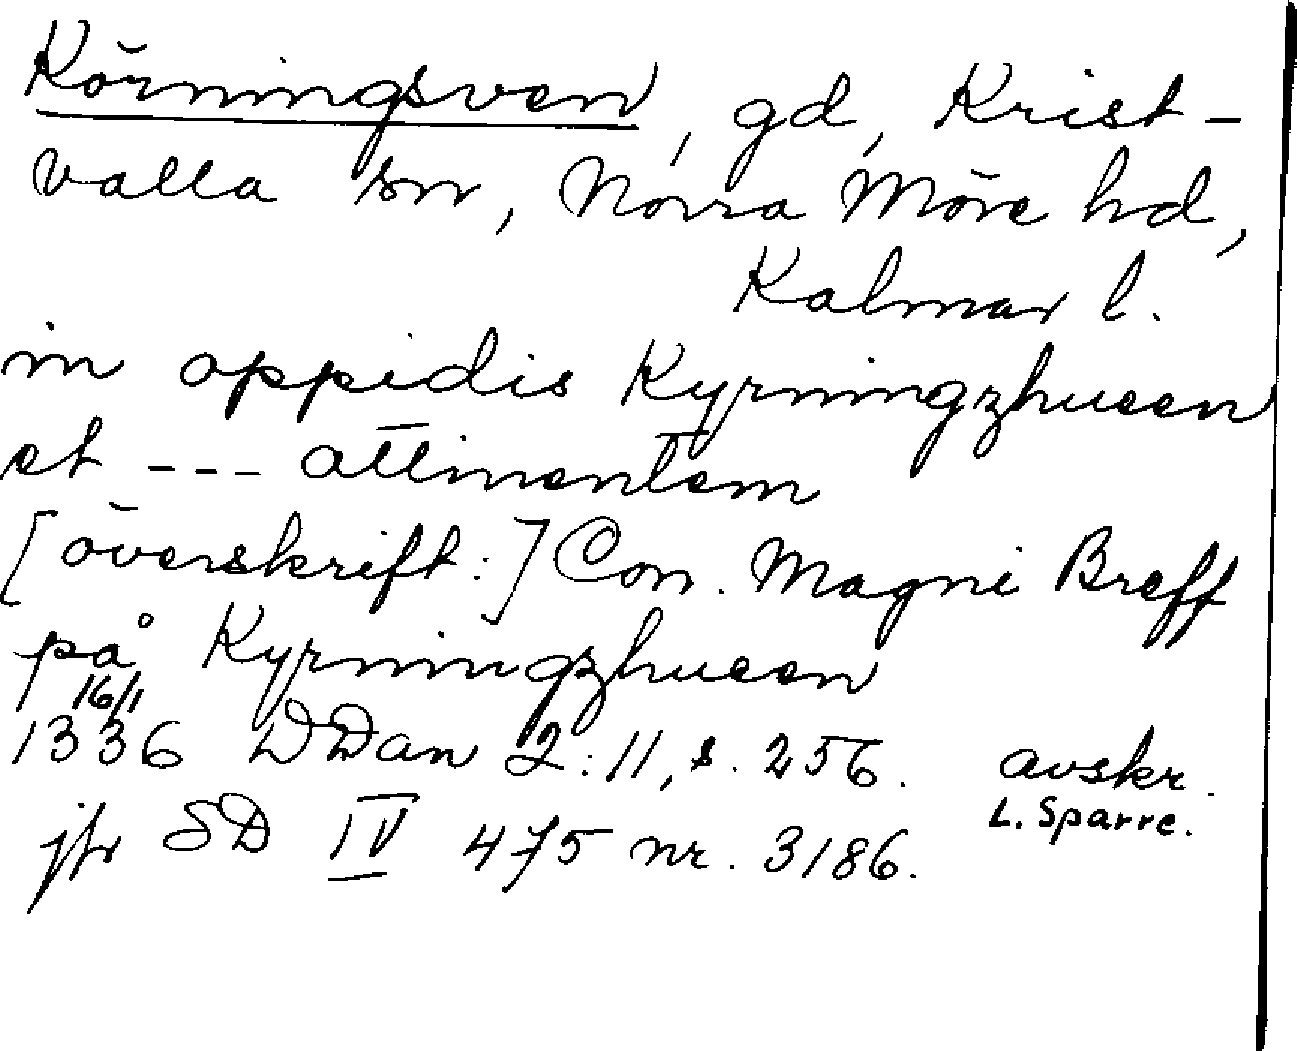 Körningsven, gd, Krist-
valla sn, Norra Möre hd,
Kalmar l.
in oppidis Kyrningzhueen
et --- attinentem
[överskrift:] Con. Magni Breff
på Kyrningzhueen
16/1
1336 DDan 2:11, s. 256. avskr.
L. Sparre.
jfr SD IV 475 nr. 3186.